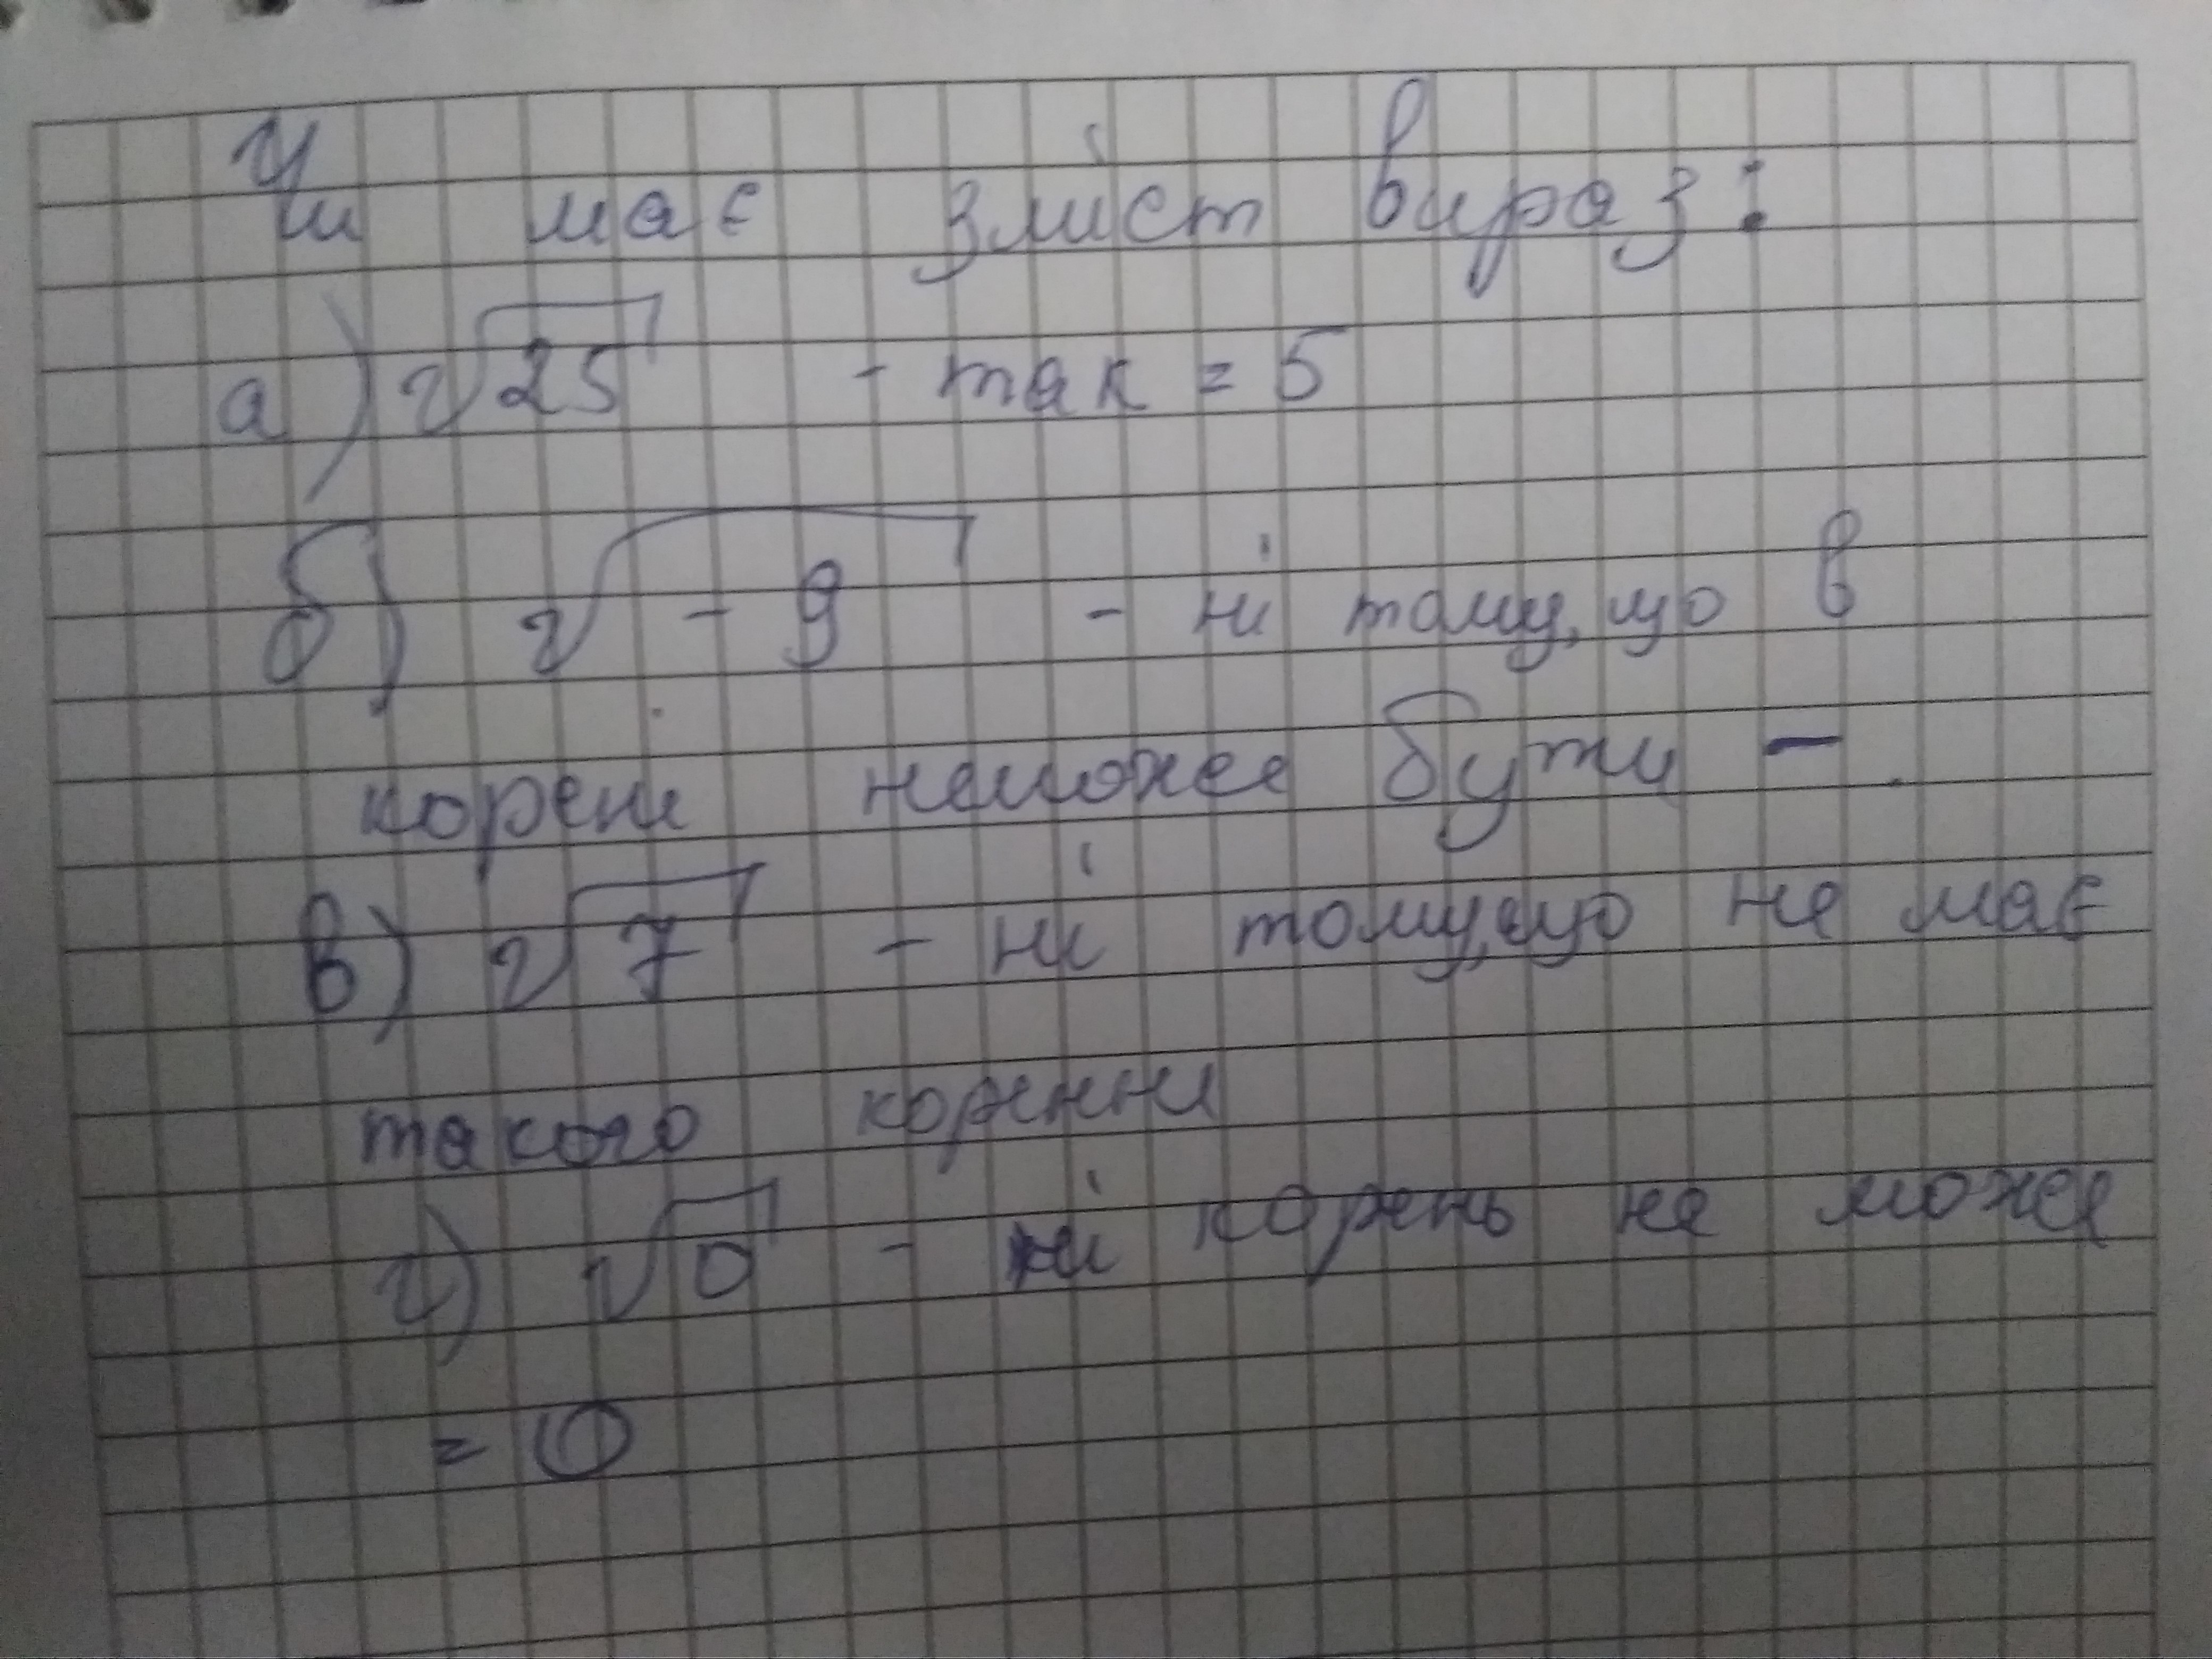 Чи має зміст вираз:
а) √25 - так = 5
б) √-9 - ні тому, що в
корені неможе бути -.
в) √7 - ні тому, що не має
такого коренні
г) √0 - ні корень не може
= 0